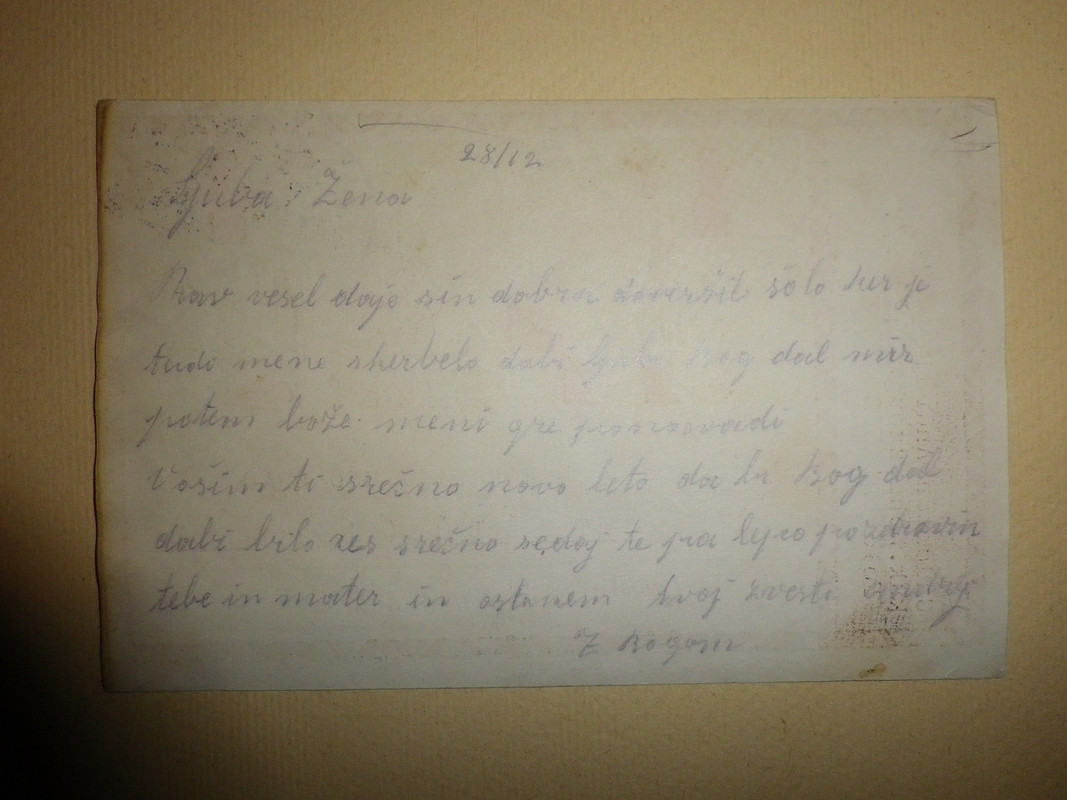 28/12
Ljuba Žena
Rav vesel dajo sin dobra doveršil šolo ker je
tudo mene skerbelo dabi ljubi Bog dal mir
potem bože meni gre
Vošim ti srečno novo leto da bi Bog dal
dabi bilo res srečno sedaj te pa lepo pozdravim
tebe in mater in ostanem tvoj zvesti
Z Bogom